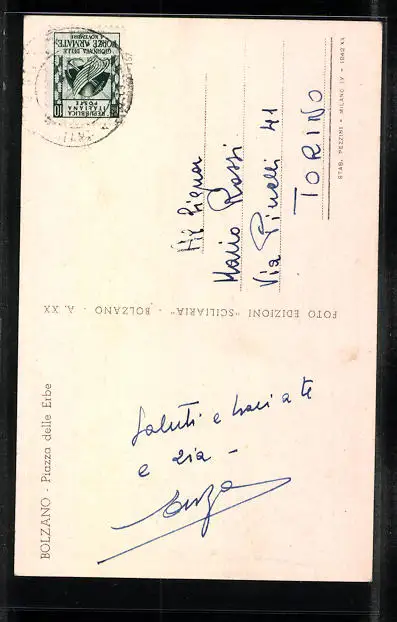 REPUBBLICA
ITALIANA
POSTE
10
GIORNATA DELLE
FORZE ARMATE
4 NOVEMBRE
Mario Rossi
Via Pinelli 41
TORINO
STAB. PEZZINI - MILANO IV - 1942 XX
FOTO EDIZIONI "SCILIARIA" - BOLZANO - A. XX
BOLZANO - Piazza delle Erbe
Saluti e baci a te
e zia -